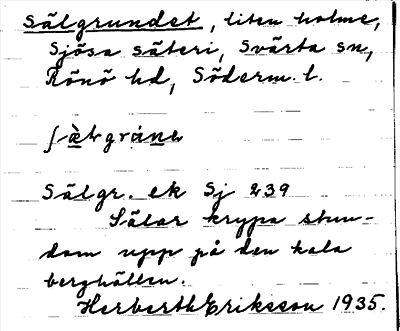 Sälgrundet, liten holme,
Sjösa säteri, Svärta sn,
Rönö hd, Söderm. l.
Sälgr. ek Sj 239
Sälar krypa stun-
dom upp på den kala
berghällen.
Herberth Eriksson 1935.